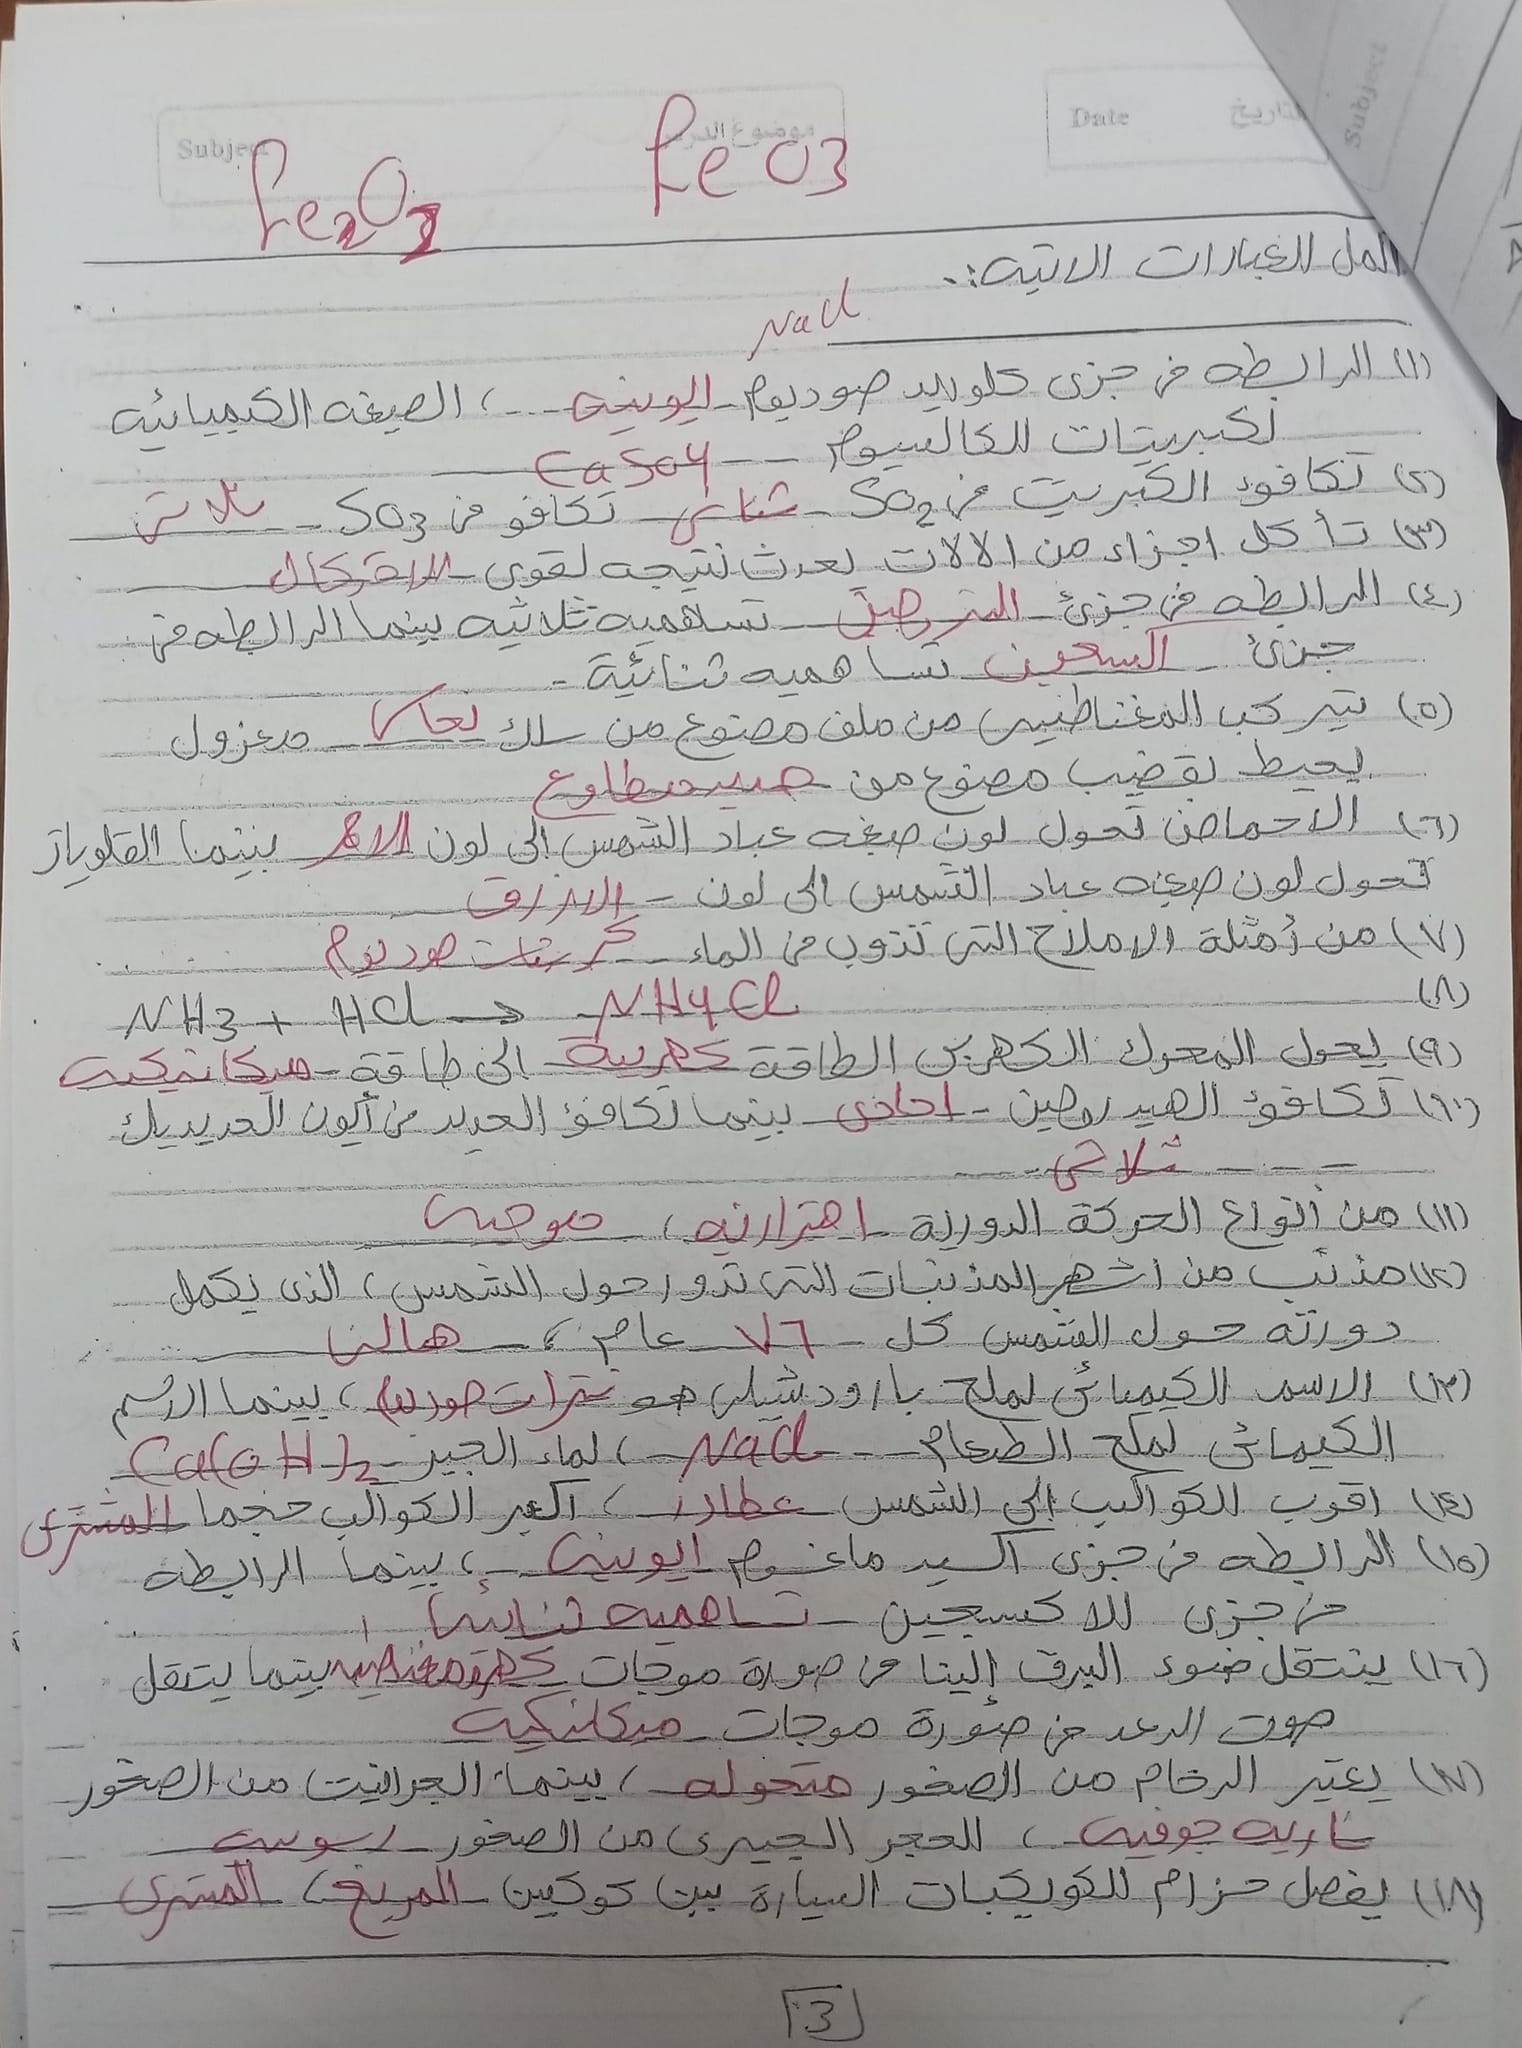 Subject موضوع الدرس Date التاريخ
Subject
Fe2O3 FeO3
اكمل العبارات الاتيه :..
NaCl
(١) الرابطه فى جزى كلوريد صوديوم ايونيه ، الصيغه الكيميائيه
لكبريتات الكالسيوم CaSO4
(٢) تكافوء الكبريت فى SO2 ثنائى تكافو فى SO3 ثلاثى
(٣) تأكل اجزاء من الالات يحدث نتيجه لقوى الاحتكاك
(٤) الرابطه فى جزئ النتروجين تساهميه ثلاثيه بينما الرابطه فى
جزئ اكسجين تساهميه ثنائية
(٥) يتركب المغناطيس من ملف مصنوع من سلك نحاس معزول
يحيط بقضيب مصنوع من حديد مطاوع
(٦) الاحماض تحول لون صبغه عباد الشمس الى لون الاحمر بينما القلويات
تحول لون صبغه عباد الشمس الى لون الازرق
(٧) من أمثلة الاملاح التى تذوب فى الماء كبريتات صوديوم
(٨) NH3 + HCl → NH4Cl
(٩) يحول المحرك الكهربى الطاقة كهربية الى طاقة ميكانيكيه
(١٠) تكافوء الهيدروجين احادى بينما تكافؤ الحديد فى أيون الحديديك
ثلاثى
(١١) من أنواع الحركة الدورية اهتزازيه ، موجيه
(١٢) مذنب من اشهر المذنبات التى تدور حول الشمس ، الذى يكمل
دورته حول الشمس كل ٧٦ عام ، هالى
(١٣) الاسم الكيميائى لملح بارود شيلى هو نترات صوديوم ، بينما الاسم
الكيمائى لملح الطعام NaCl ، لماء الجير Ca(OH)2
(١٤) اقرب الكواكب الى الشمس عطارد ، اكبر الكواكب حجما المشترى
(١٥) الرابطه فى جزى اكسيد ماغنسيوم ايونيه ، بينما الرابطه
فى جزى الاكسجين تساهميه ثنائيه
(١٦) ينتقل ضوء البرق إلينا فى صورة موجات كهرومغناطيسيه بينما ينتقل
صوت الرعد فى صورة موجات ميكانيكيه
(١٧) يعتبر الرخام من الصخور متحوله ، بينما الجرانيت من الصخور
ناريه جوفيه ، الحجر الجيرى من الصخور رسوبيه
(١٨) يفصل حزام الكويكبات السيارة بين كوكبين المريخ ، المشترى
3